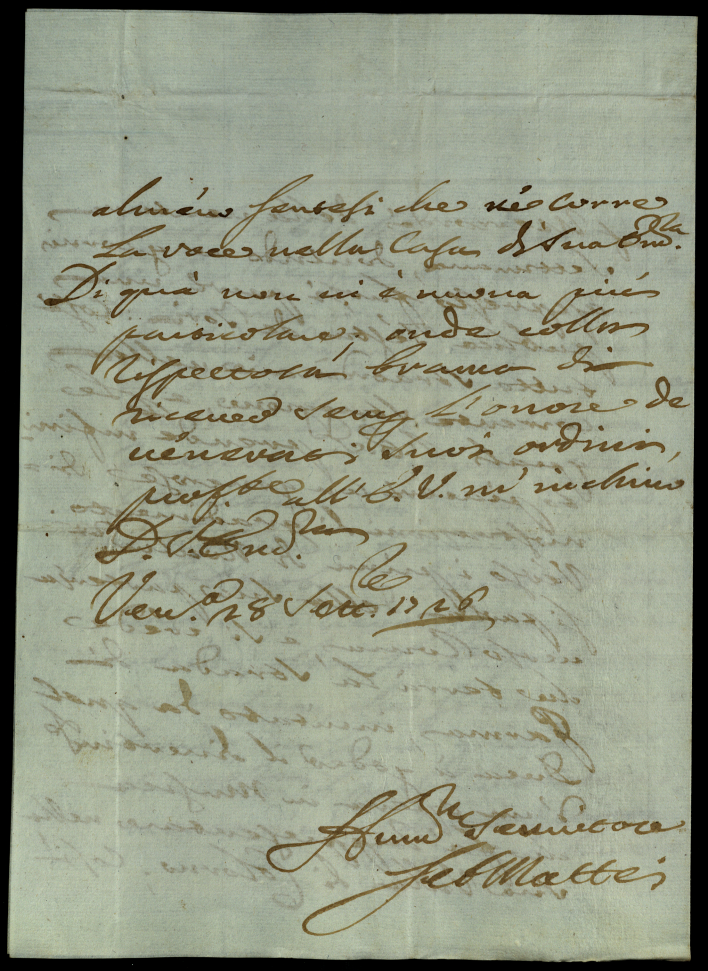 almeno sentesi che né corre
la voce nella Casa di Sua Em.za
Di quà non vi è nuova più
particolare, onde colla
rispettosa brama di
ricever semp. l'onore de
venerati suoi ordini,
prof.te all'E. V. m'inchino
D. V. Em.za
Ven.a 28 Sett.re 1726
Servitore
Mattei